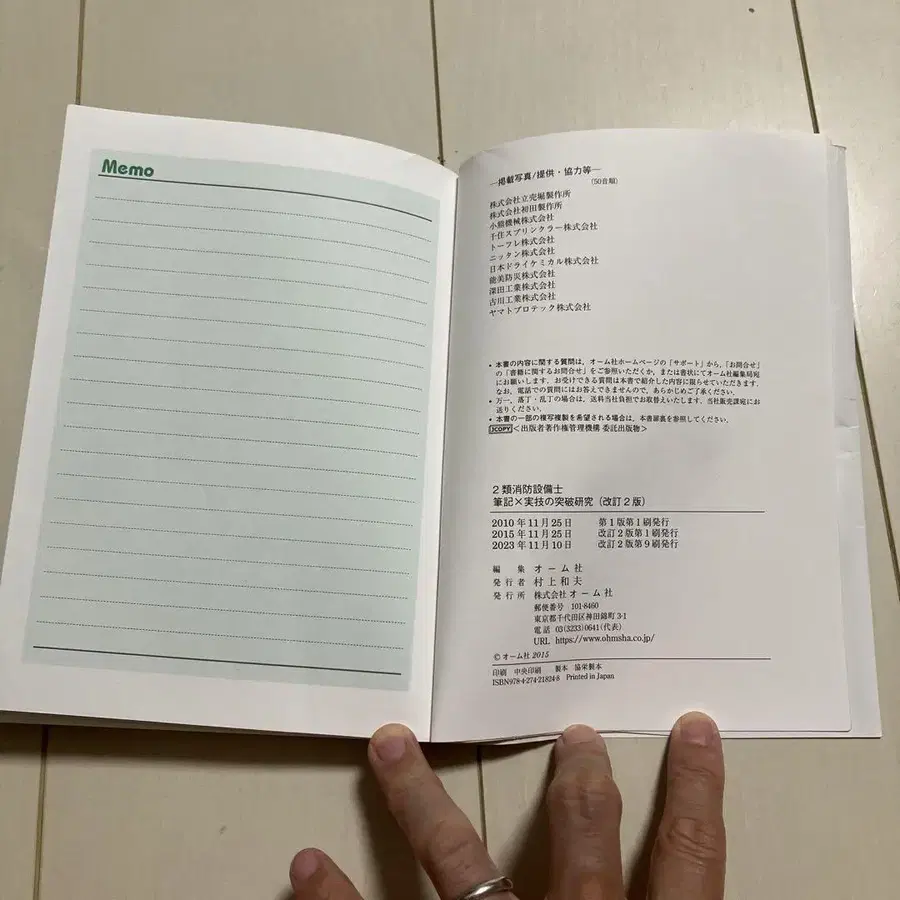 Memo
―掲載写真/提供・協力等―
(50音順)
株式会社立売堀製作所
株式会社初田製作所
小熊機械株式会社
千住スプリンクラー株式会社
トーフレ株式会社
ニッタン株式会社
日本ドライケミカル株式会社
能美防災株式会社
深田工業株式会社
古川工業株式会社
ヤマトプロテック株式会社
• 本書の内容に関する質問は,オーム社ホームページの「サポート」から,「お問合せ」
の「書籍に関するお問合せ」をご参照いただくか,または書状にてオーム社編集局宛
にお願いします.お受けできる質問は本書で紹介した内容に限らせていただきます.
なお,電話での質問にはお答えできませんので,あらかじめご了承ください.
• 万一,落丁・乱丁の場合は,送料当社負担でお取替えいたします.当社販売課宛にお
送りください.
• 本書の一部の複写複製を希望される場合は,本書扉裏を参照してください.
JCOPY <出版者著作権管理機構 委託出版物>
2類消防設備士
筆記×実技の突破研究(改訂2版)
2010年11月25日 第1版第1刷発行
2015年11月25日 改訂2版第1刷発行
2023年11月10日 改訂2版第9刷発行
編集 オーム社
発行者 村上和夫
発行所 株式会社オーム社
郵便番号 101-8460
東京都千代田区神田錦町3-1
電話 03(3233)0641(代表)
URL https://www.ohmsha.co.jp/
© オーム社 2015
印刷 中央印刷 製本 協栄製本
ISBN978-4-274-21824-8 Printed in Japan